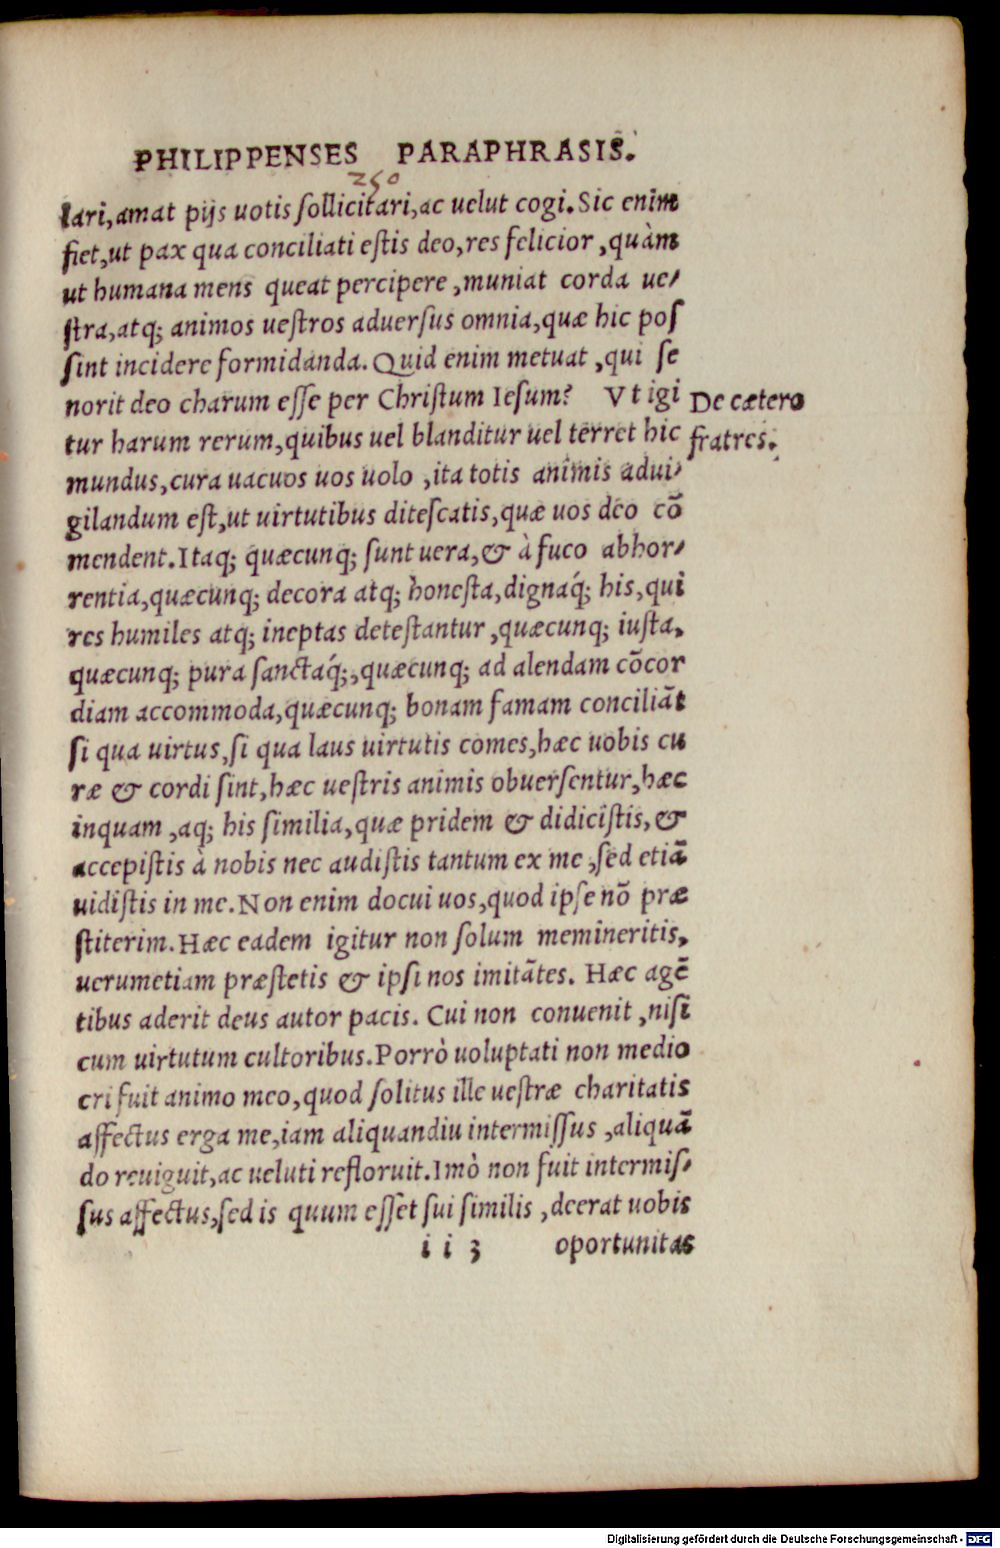 PHILIPPENSES PARAPHRASIS.
250
lari, amat pijs uotis sollicitari, ac uelut cogi. Sic enim
fiet, ut pax qua conciliati estis deo, res felicior, quàm
ut humana mens queat percipere, muniat corda ue-
stra, atq; animos uestros aduersus omnia, quæ hic pos
sint incidere formidanda. Quid enim metuat, qui se
norit deo charum esse per Christum Iesum? Vt igi
De cætero
tur harum rerum, quibus uel blanditur uel terret hic
fratres.
mundus, cura uacuos uos uolo, ita totis animis adui-
gilandum est, ut uirtutibus ditescatis, quæ uos deo cō
mendent. Itaq; quæcunq; sunt uera, & à fuco abhor-
rentia, quæcunq; decora atq; honesta, dignaq́; his, qui
res humiles atq; ineptas detestantur, quæcunq; iusta,
quæcunq; pura sanctaq́;, quæcunq; ad alendam cōcor
diam accommoda, quæcunq; bonam famam conciliāt
si qua uirtus, si qua laus uirtutis comes, hæc uobis cu
ræ & cordi sint, hæc uestris animis obuersentur, hæc
inquam, aq; his similia, quæ pridem & didicistis, &
accepistis à nobis nec audistis tantum ex me, sed etiā
uidistis in me. Non enim docui uos, quod ipse nō præ
stiterim. Hæc eadem igitur non solum memineritis,
uerumetiam præstetis & ipsi nos imitātes. Hæc agē
tibus aderit deus autor pacis. Cui non conuenit, nisi
cum uirtutum cultoribus. Porrò uoluptati non medio
cri fuit animo meo, quod solitus ille uestræ charitatis
affectus erga me, iam aliquandiu intermissus, aliquā
do reuiguit, ac ueluti refloruit. Imò non fuit intermis-
sus affectus, sed is quum esset sui similis, deerat uobis
i i 3 oportunitas
Digitalisierung gefördert durch die Deutsche Forschungsgemeinschaft - DFG